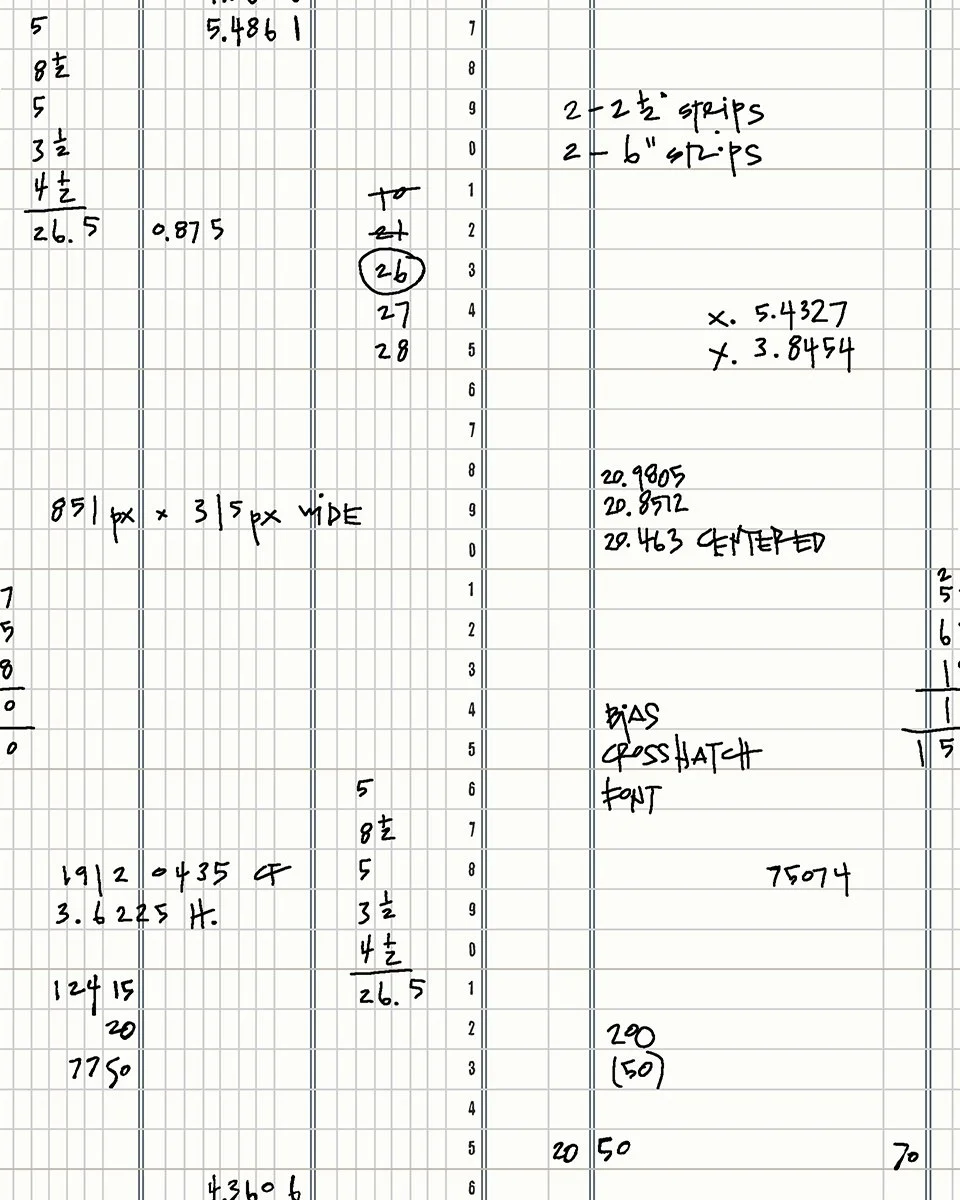 5
5.4861
8 1/2
5
3 1/2
4 1/2
26.5
0.875
10
21
26
27
28
851 px × 315 px WIDE
7
5
8
0
0
5
8 1/2
5
3 1/2
4 1/2
26.5
1912 0435 CF
3.6225 H.
124 15
20
7750
4.3606
7
8
9
0
1
2
3
4
5
6
7
8
9
0
1
2
3
4
5
6
7
8
9
0
1
2
3
4
5
6
2 - 2 1/2" STRIPS
2 - 6" STRIPS
X. 5.4327
Y. 3.8454
20.9805
20.8512
20.463 CENTERED
BIAS
CROSSHATCH
FONT
75074
200
(50)
20 50
70
2
5
6
1
1
15